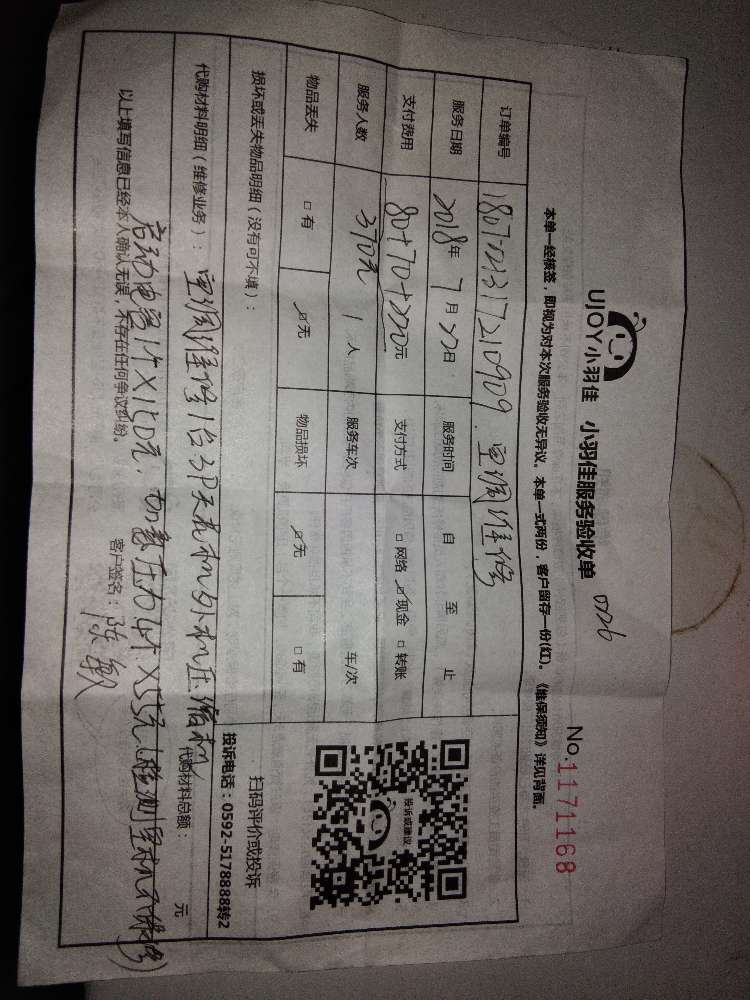 UJOY小羽佳 小羽佳服务验收单 0726
No.1171168
本单一经核签，即视为对本次服务验收无异议。本单一式两份，客户留存一份(红)。《维保须知》详见背面。
订单编号 空调维修
服务日期 2018年7月22日 服务时间 自 至 止
支付费用 80+70+220元 支付方式 □网络 ☑现金 □转账
370元
服务人数 1人 服务车次 车/次
物品丢失 □有 ☑无 物品损坏 ☑无 □有
损坏或丢失物品明细（没有可不填）：
扫码评价或投诉
投诉电话：0592-5178888转2
投诉或建议
代购材料明细（维修业务）：空调维修1台3P天花机外机压缩机
代购材料总额： 元
启动电容1个X150元，加氟压力4个X55元(检测室机不维修)
以上填写信息已经本人确认无误，不存在任何争议纠纷。 客户签名：陈敏